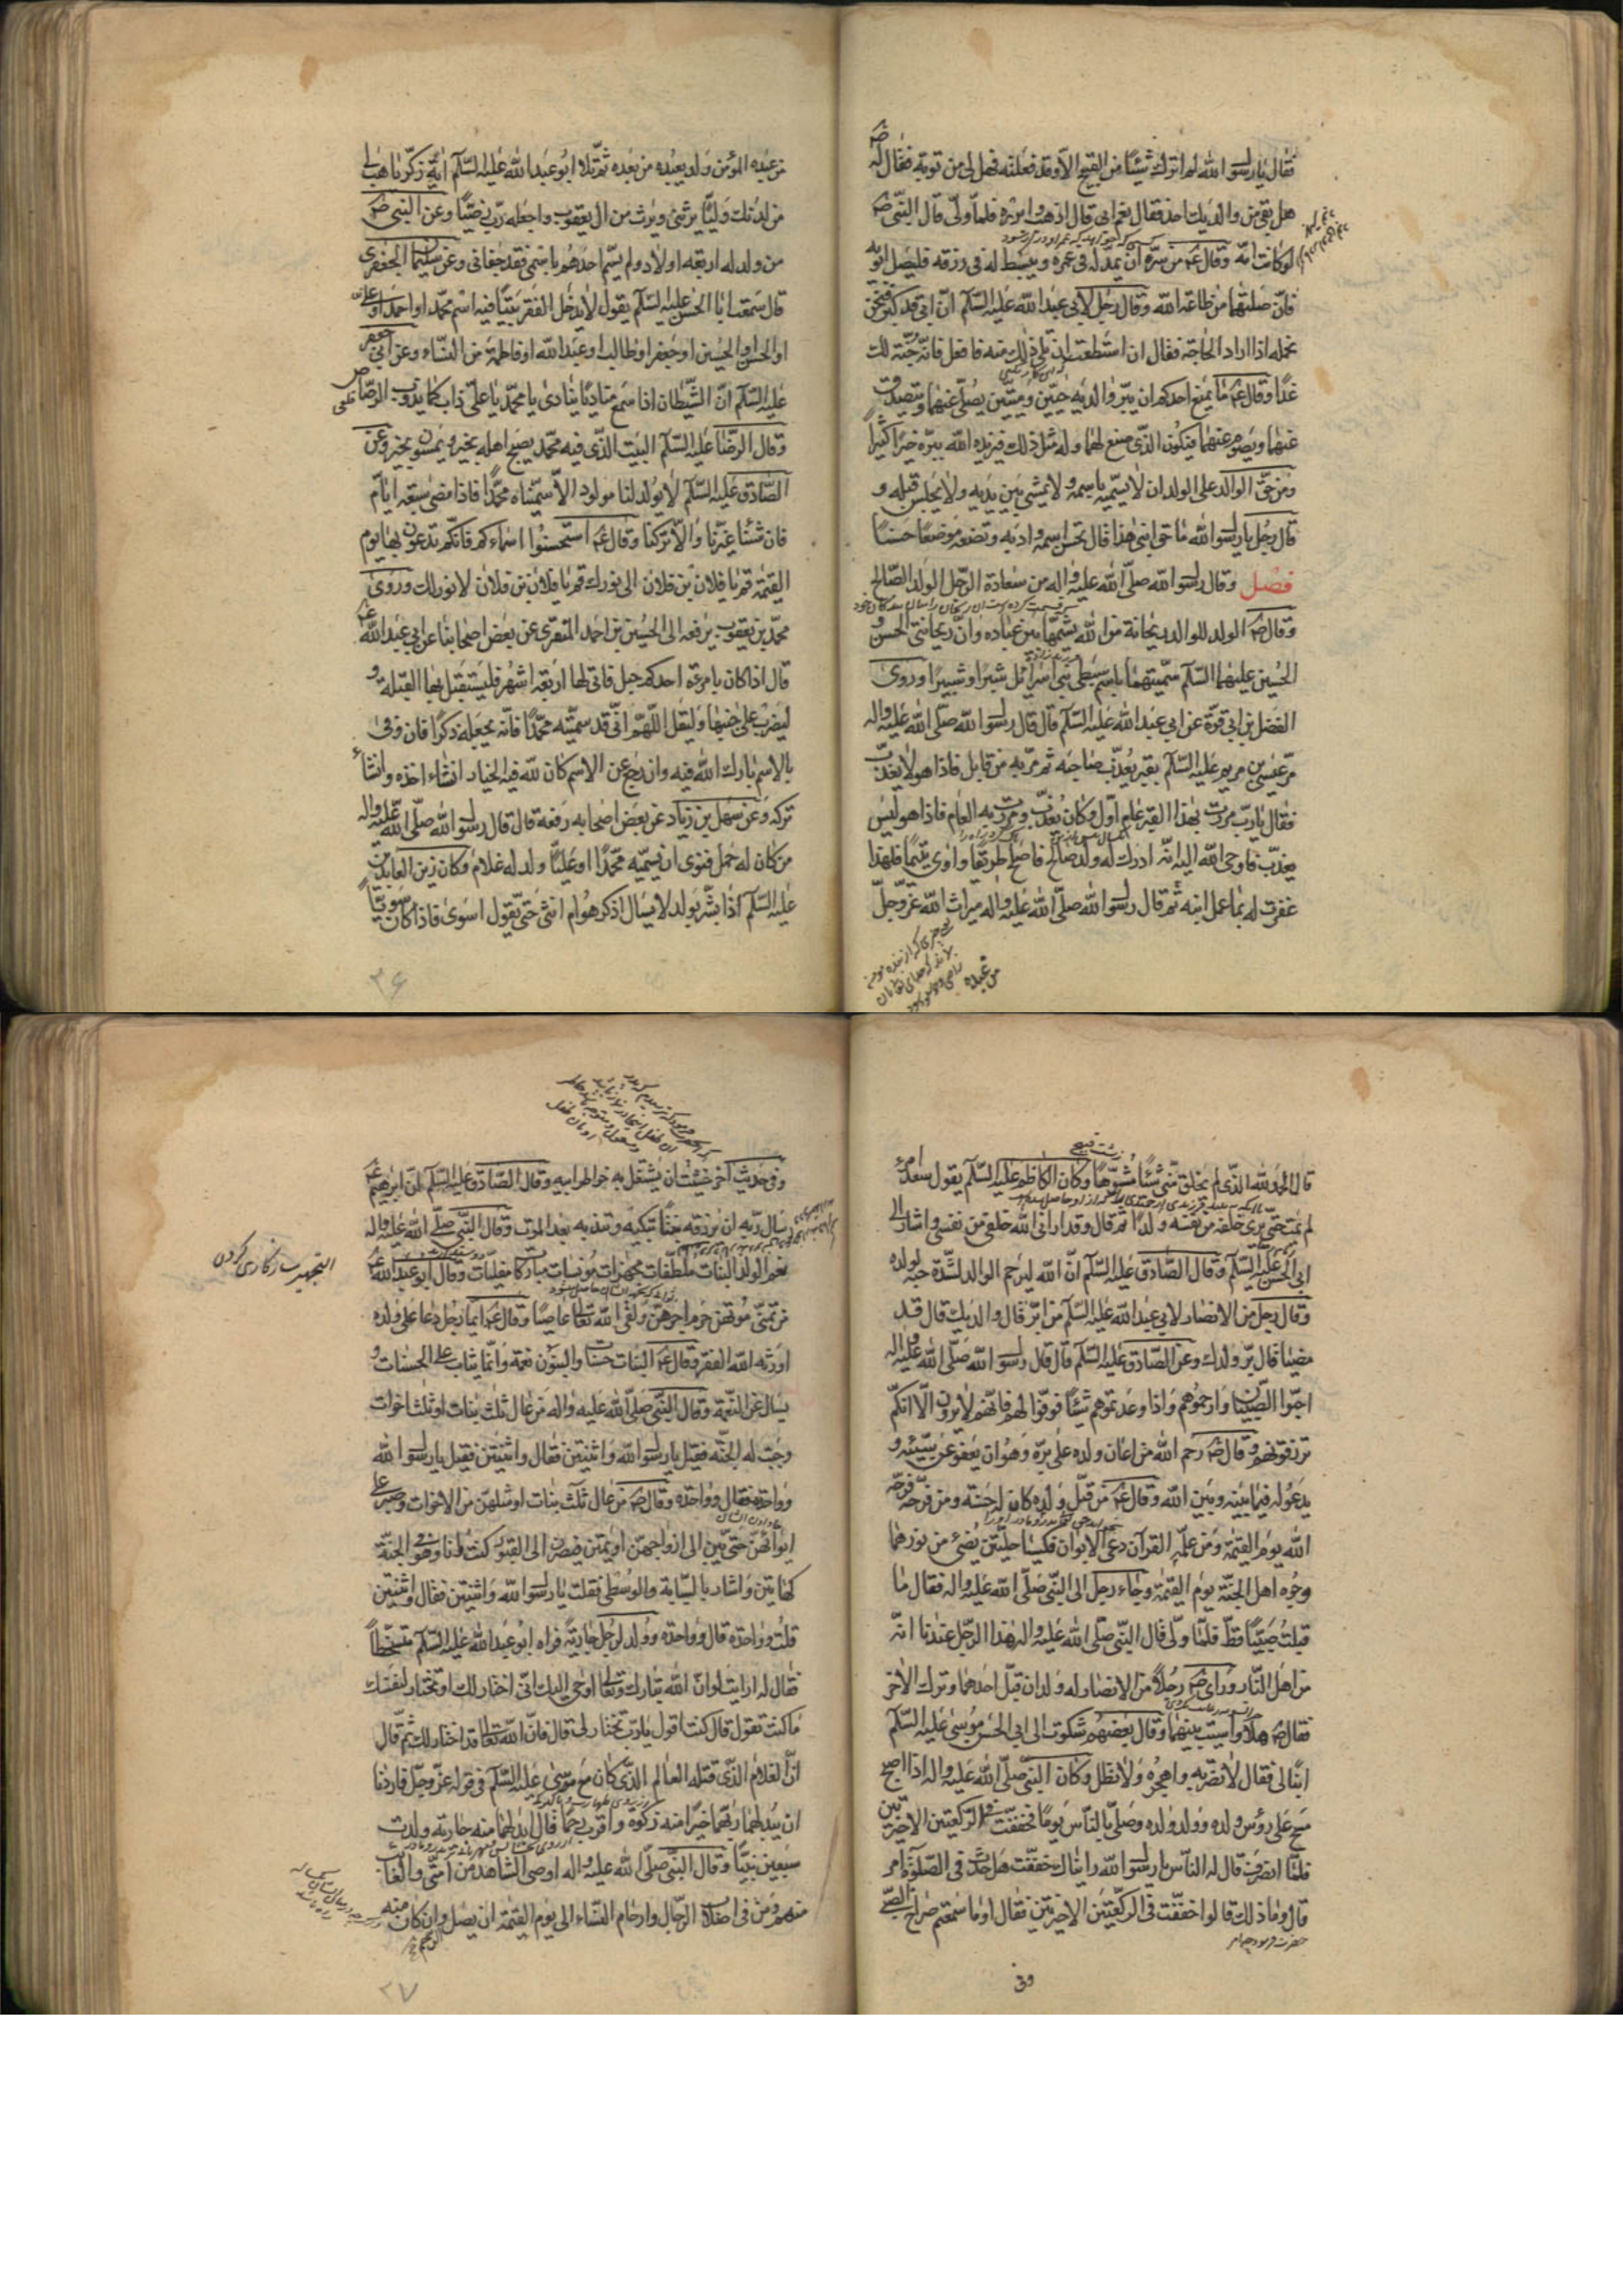 فقال يا رسول الله لم اترك شيئا من القبيح الا وقد فعلته فهل لى من توبة فقال له ص
هل بقى من والديك احد فقال نعم ابى قال اذهب وابرره فلما ولى قال النبى ص
لو كانت امه وقال ع من سره ان يمد له فى عمره ويبسط له فى رزقه فليصل ابويه
فان صلتهما من طاعة الله وقال رجل لابى عبد الله عليه السلم ان ابى قد كبر فنحن
نحمله اذا اراد الحاجة فقال ان استطعت ان تلى ذلك منه فافعل فانه جنة لك
غدا وقال ع ما يمنع احدكم ان يبر والديه حيين وميتين يصلى عنهما ويتصدق
عنهما ويصوم عنهما فيكون الذى صنع لهما وله مثل ذلك فيزيده الله ببره خيرا كثيرا
ومن حق الوالد على الولد ان لا يسميه باسمه ولا يمشى بين يديه ولا يجلس قبله و
قال رجل يا رسول الله ما حق ابنى هذا قال تحسن اسمه وادبه وتضعه موضعا حسنا
فصل وقال رسول الله صلى الله عليه واله من سعادة الرجل الولد الصالح
وقال ص الولد للوالد ريحانة من الله يشمها من عباده وان ريحانتى الحسن و
الحسين عليهما السلم سميتهما باسم سبطى بنى اسرائل شبرا وشبيرا وروى
الفضل بن ابى قرة عن ابى عبد الله عليه السلم قال قال رسول الله صلى الله عليه واله
مر عيسى بن مريم عليه السلم بقبر يعذب صاحبه ثم مر به من قابل فاذا هو لا يعذب
فقال يا رب مررت بهذا القبر عام اول وكان يعذب ومررت به العام فاذا هو ليس
يعذب فاوحى الله اليه انه ادرك له ولد صالح فاصلح طريقا واوى يتيما فلهذا
غفرت له بما عمل ابنه ثم قال رسول الله صلى الله عليه واله ميراث الله عز وجل
من عبده
من عبده المؤمن ولد يعبده من بعده ثم تلا ابو عبد الله عليه السلم اية زكريا هب لى
من لدنك وليا يرثنى ويرث من ال يعقوب واجعله رب رضيا وعن النبى ص
من ولد له اربعة اولاد ولم يسم احدهم باسمى فقد جفانى وعن سليمان الجعفرى
قال سمعت ابا الحسن عليه السلم يقول لا يدخل الفقر بيتا فيه اسم محمد او احمد او على
او الحسن او الحسين او جعفر او طالب او عبد الله او فاطمة من النساء وعن ابى جعفر
عليه السلم ان الشيطان اذا سمع مناديا ينادى يا محمد يا على ذاب كما يذوب الرصاص
وقال الرضا عليه السلم البيت الذى فيه محمد يصبح اهله بخير ويمسون بخير وعن
الصادق عليه السلم لا يولد لنا مولود الا سميناه محمدا فاذا مضى سبعة ايام
فان شئنا غيرنا والا تركنا وقال ع استحسنوا اسماءكم فانكم تدعون بها يوم
القيمة قم يا فلان بن فلان الى نورك قم يا فلان بن فلان لا نور لك وروى
محمد بن يعقوب يرفعه الى الحسين بن احمد المنقرى عن بعض اصحابنا عن ابى عبد الله ع
قال اذا كان بامرءة احدكم حبل فاتى لها اربعة اشهر فليستقبل بها القبلة و
ليضرب على جنبها وليقل اللهم انى قد سميته محمدا فانه يجعله ذكرا فان وفى
بالاسم بارك الله فيه وان رجع عن الاسم كان لله فيه الخيار انشاء اخذه وانشاء
تركه وعن سهل بن زياد عن بعض اصحابه رفعه قال قال رسول الله صلى الله عليه واله
من كان له حمل فنوى ان يسميه محمدا او عليا ولد له غلام وكان زين العابدين
عليه السلم اذا بشر بولد لا يسال اذكر هو ام انثى حتى يقول اسوى فاذا كان سويا
٣۶
قال الحمد لله الذى لم يخلق منى شيئا مشوها وكان الكاظم عليه السلم يقول سعد امرء
لم يمت حتى يرى خلفه من نفسه ولدا ثم قال وقد ارانى الله خلفى من نفسى واشار الى
ابى الحسن عليه السلم وقال الصادق عليه السلم ان الله ليرحم الوالد لشدة حبه لولده
وقال رجل من الانصار لابى عبد الله عليه السلم من ابر قال والديك قال قد
مضيا قال بر ولدك وعن الصادق عليه السلم قال قال رسول الله صلى الله عليه واله
احبوا الصبيان وارحموهم واذا وعدتموهم شيئا ففوا لهم فانهم لا يرون الا انكم
ترزقونهم وقال ص رحم الله من اعان ولده على بره وهو ان يعفو عن سيئته و
يدعو له فيما بينه وبين الله وقال ع من قبل ولده كان له حسنة ومن فرحه فرحه
الله يوم القيمة ومن علمه القرآن دعى الابوان فكسيا حلتين يضئ من نورهما
وجوه اهل الجنة يوم القيمة وجاء رجل الى النبى صلى الله عليه واله فقال ما
قبلت صبيا قط فلما ولى قال النبى صلى الله عليه واله هذا الرجل عندنا انه
من اهل النار وراى ص رجلا من الانصار له ولدان قبل احدهما وترك الاخر
فقال ص هلا واسيت بينهما وقال بعضهم شكوت الى ابى الحسن موسى عليه السلم
ابنا لى فقال لا تضربه واهجره ولا تطل وكان النبى صلى الله عليه واله اذا اصبح
مسح على رؤس ولده وولد ولده وصلى بالناس يوما فخفف فى الركعتين الاخيرتين
فلما انصرف قال له الناس يا رسول الله راٮناك خففت هل حدث فى الصلوة امر
قال وما ذلك قالوا خففت فى الركعتين الاخيرتين فقال اوما سمعتم صراخ الصبى
وفى
وفى حديث آخر خشيت ان يشتغل به خاطر ابيه وقال الصادق عليه السلم ان ابرهيم ع
سال ربه ان يرزقه بنتا تبكيه وتندبه بعد الموت وقال النبى صلى الله عليه واله
نعم الولد البنات ملطفات مجهزات مونسات مباركات مفليات وقال ابو عبد الله ع
من تمنى موتهن حرم اجرهن ولقى الله تعالى عاصيا وقال ع ايما رجل دعا على ولده
اورثه الله الفقر وقال ع البنات حسنات والبنون نعمة وانما يثاب على الحسنات و
يسال عن النعمة وقال النبى صلى الله عليه واله من عال ثلث بنات او ثلث اخوات
وجبت له الجنة فقيل يا رسول الله واثنتين فقال واثنتين فقيل يا رسول الله
وواحدة فقال وواحدة وقال ص من عال ثلث بنات او مثلهن من الاخوات وصبر على
ايوائهن حتى يبن الى ازواجهن او يمتن فيصرن الى القبور كنت انا وهو فى الجنة
كهاتين واشار بالسبابة والوسطى فقلت يا رسول الله واثنتين فقال واثنتين
قلت وواحدة قال وواحدة وولد لرجل جارية فراه ابو عبد الله عليه السلم متسخطا
فقال له ارايت لو ان الله تبارك وتعالى اوحى اليك انى اختار لك او تختار لنفسك
ما كنت تقول قال كنت اقول يا رب تختار لى قال فان الله تعالى قد اختار لك ثم قال
ان الغلام الذى قتله العالم الذى كان مع موسى عليه السلم فى قوله عز وجل فاردنا
ان يبدلهما ربهما خيرا منه زكوة واقرب رحما قال ابدلهما منه جارية ولدت
سبعين نبيا وقال النبى صلى الله عليه واله اوصى الشاهد من امتى والغائب
منهم ومن فى اصلاب الرجال وارحام النساء الى يوم القيمة ان يصل الرحم وان كان منه
التجهیز سازکاری کردن
٣٧